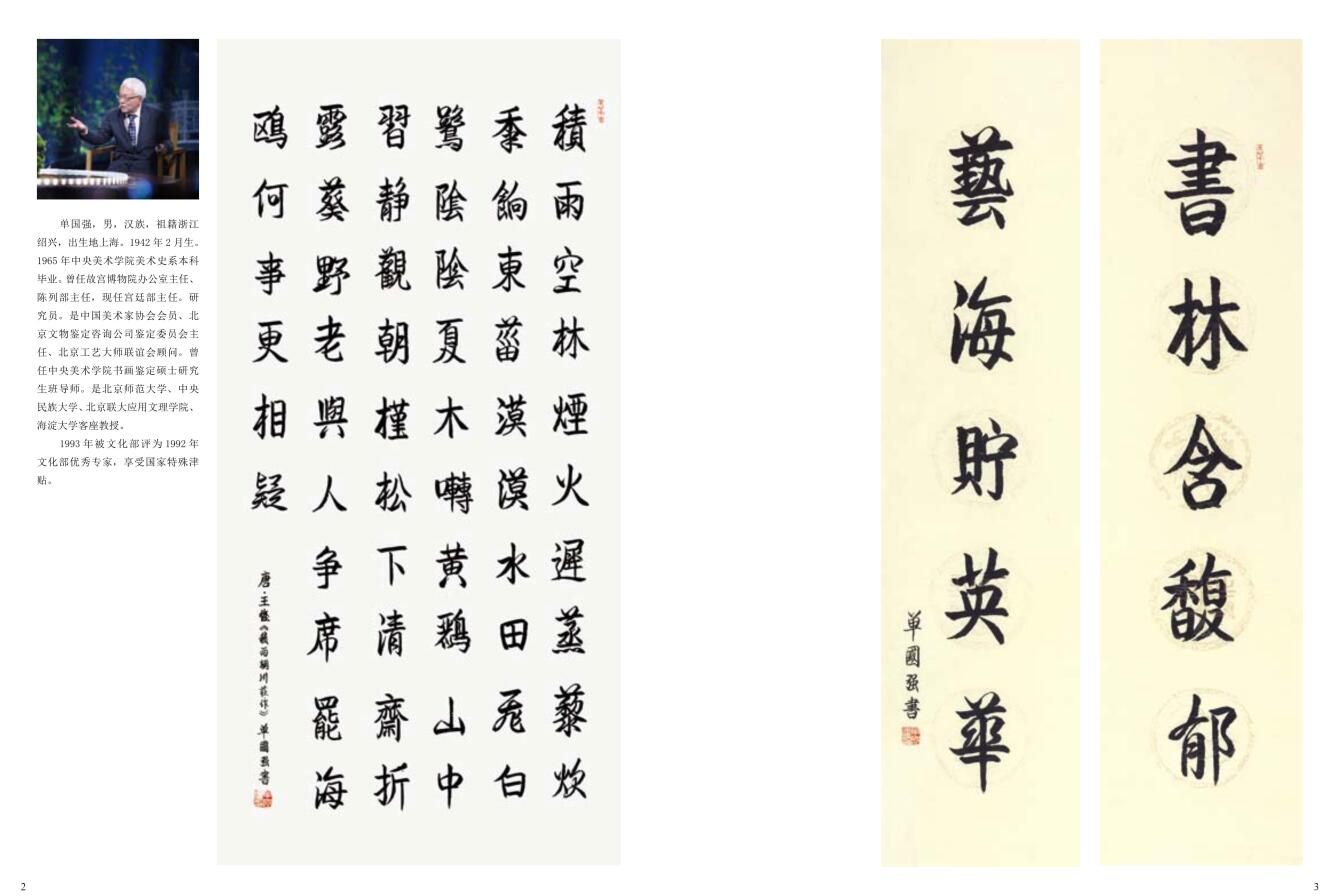 单国强，男，汉族，祖籍浙江
绍兴，出生地上海。1942 年 2 月生。
1965 年中央美术学院美术史系本科
毕业。曾任故宫博物院办公室主任、
陈列部主任，现任宫廷部主任。研
究员。是中国美术家协会会员、北
京文物鉴定咨询公司鉴定委员会主
任、北京工艺大师联谊会顾问。曾
任中央美术学院书画鉴定硕士研究
生班导师。是北京师范大学、中央
民族大学、北京联大应用文理学院、
海淀大学客座教授。
1993 年被文化部评为 1992 年
文化部优秀专家，享受国家特殊津
贴。
積雨空林煙火遲蒸藜炊
黍餉東菑漠漠水田飛白
鷺陰陰夏木囀黄鸝山中
習静觀朝槿松下清齋折
露葵野老與人争席罷海
鷗何事更相疑
唐·王維《積雨輞川莊作》單國强書
2
書林含馥郁
藝海貯英華
單國强書
3